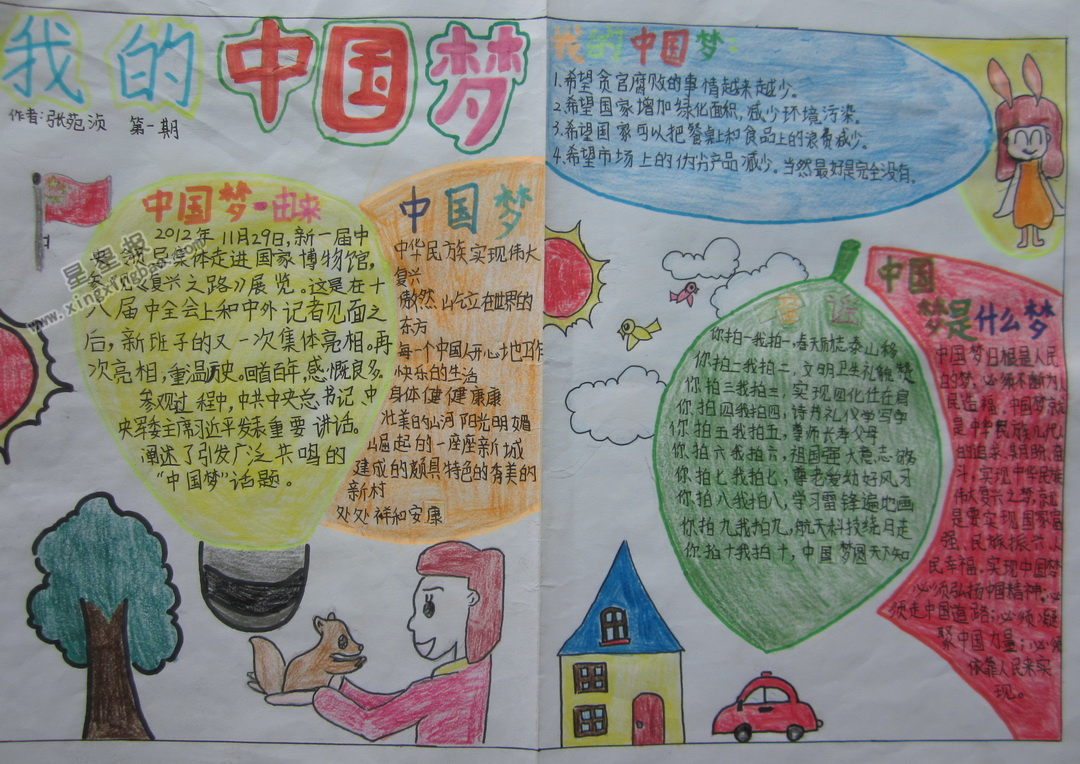 我的中国梦
作者:张苑浈 第一期
中国梦-由来
2012年11月29日,新一届中
导集体走进国家博物馆,
《复兴之路》展览。这是在十
八届中全会上和中外记者见面之
后,新班子的又一次集体亮相。再
次亮相,重温历史。回首百年,感慨良多。
参观过程中,中共中央总书记、中
央军委主席习近平发表重要讲话。
阐述了引发广泛共鸣的
“中国梦”话题。
星星报
www.xingxingbao.com
中国梦
中华民族实现伟大
复兴
傲然屹立在世界的
东方
每一个中国人开心地工作
快乐的生活
身体健健康康
壮美的山河阳光明媚
崛起的一座座新城
建成的颇具特色的秀美的
新村
处处祥和安康
我的中国梦:
1.希望贪官腐败的事情越来越少。
2.希望国家增加绿化面积,减少环境污染。
3.希望国家可以把餐桌和食品上的浪费减少。
4.希望市场上的伪劣产品减少。当然最好是完全没有。
童谣
你拍一我拍一,春天励志泰山移
你拍二我拍二,文明卫生礼貌赞
你拍三我拍三,实现四化仕在肩
你拍四我拍四,诗书礼仪学写字
你拍五我拍五,尊师长孝父母
你拍六我拍六,祖国强大意志够
你拍七我拍七,尊老爱幼好风习
你拍八我拍八,学习雷锋遍地画
你拍九我拍九,航天科技绕月走
你拍十我拍十,中国梦圆天下知
中国
梦是什么梦
中国梦归根是人民
的梦,必须不断为人
民造福。中国梦就
是中华民族几代人
的追求
斗,实现中华民族
伟大复兴之梦,就
是要实现国家富
强、民族振兴、人
民幸福。实现中国梦
必须弘扬中国精神;必
须走中国道路;必须凝
聚中国力量;必须
依靠人民来实
现。